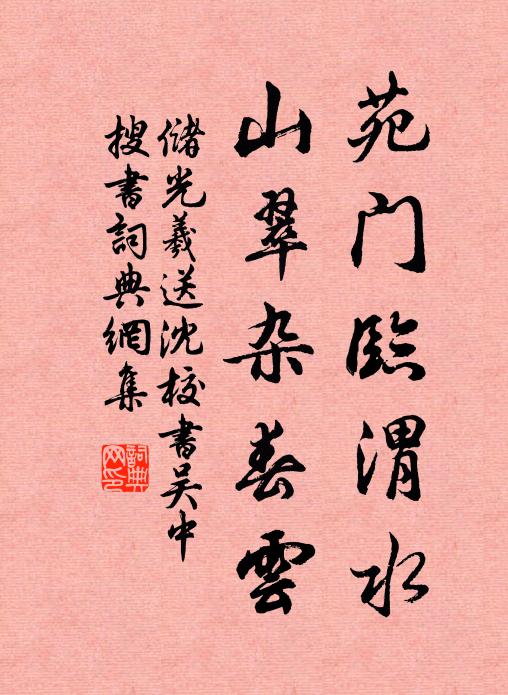 苑门臨渭水
山翠杂春雲
储光羲送沈校書吴中
搜書詞典網集
詞典
网印